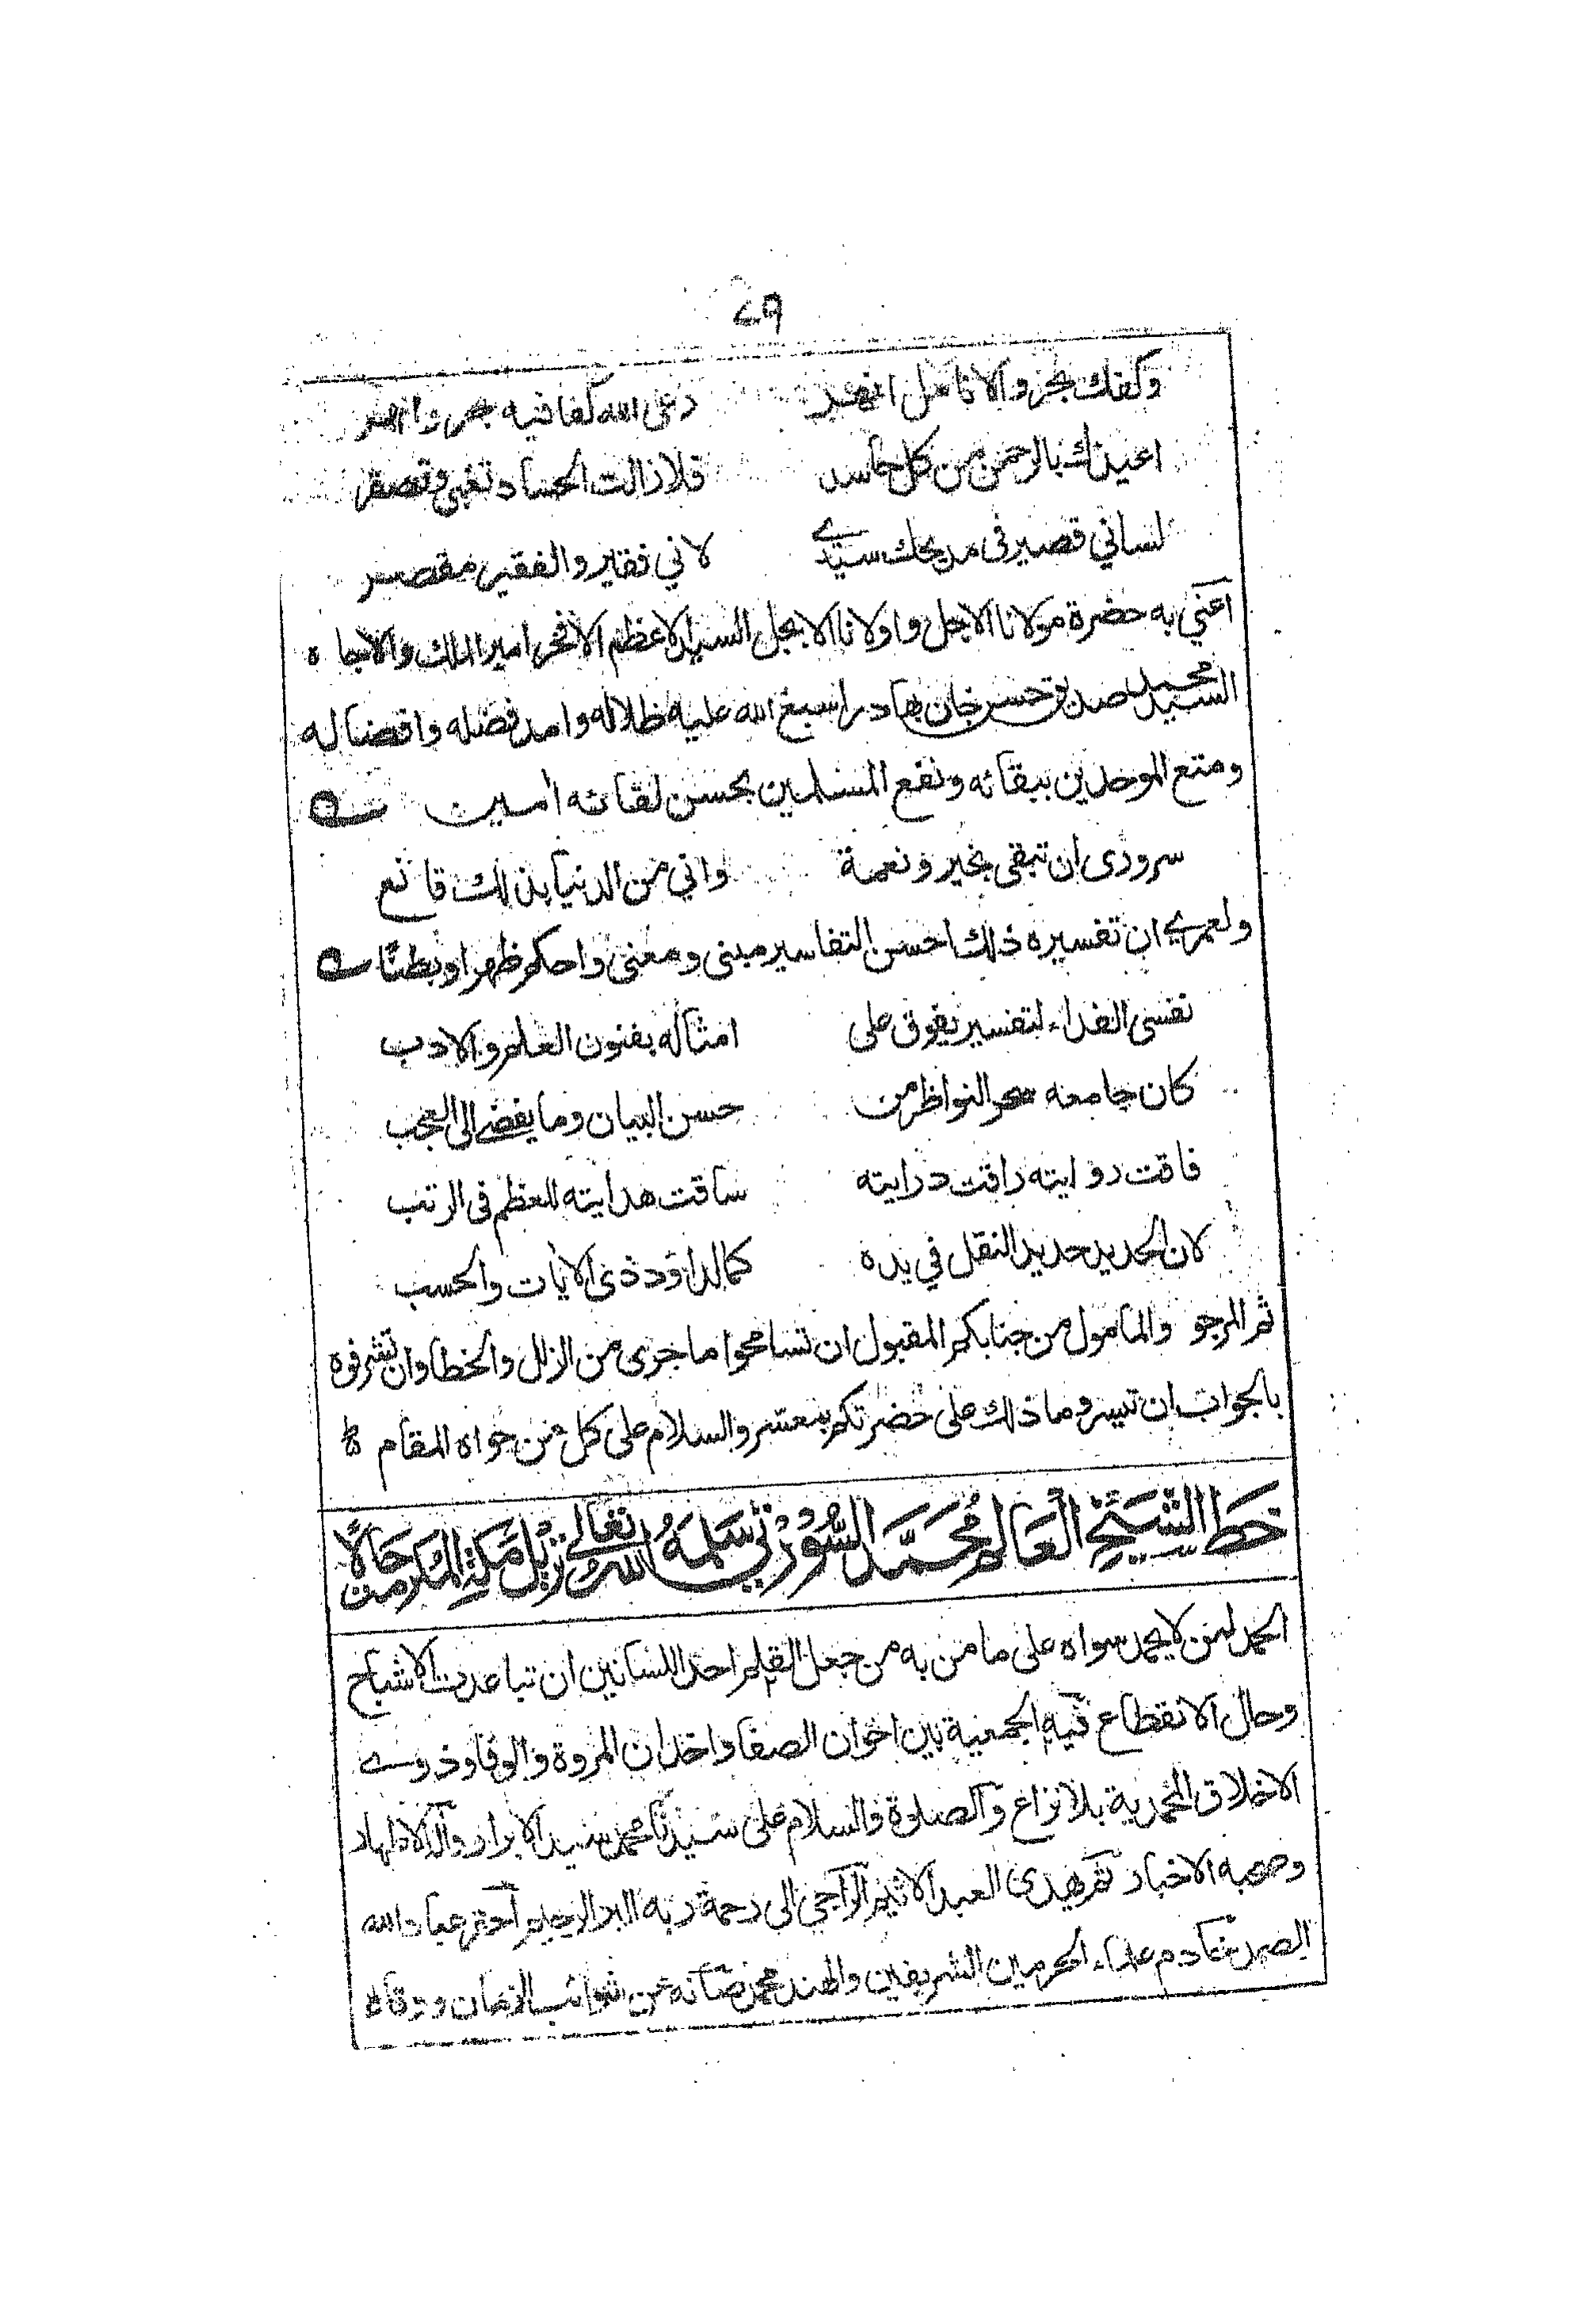 ٧٩
وكفك بحر والانامل انهر رعى الله كفا فيه بحر وانهر
اعيذك بالرحمن من كل حاسد فلا زالت الحساد تغبى وتصقر
لساني قصير فى مديحك سيدے لاني فقير والفقير مقصر
اعني به حضرة مولانا الاجل واولانا الابجل السيد الاعظم الافخر امير الملك والاجاه
السيد محمد صديق حسن خان بهادر اسبغ الله عليه ظلاله وامد فضله وافضاله
ومتع الموحدين ببقائه ونفع المسلمين بحسن لقائه امين
سرورى ان تبقى بخير ونعمة واني من الدنيا بذلك قانع
ولعمرے ان تفسيره ذلك احسن التفاسير مبنى ومعنى واحكم ظهرا وبطنًا
نفسى الفداء لتفسير يفوق على امثاله بفنون العلم والادب
كان جامعه سحر النواظر من حسن البيان وما يفضے الى العجب
فاقت روايته راقت درايته ساقت هدايته للعظم فى الرتب
لان الحديد حديد النقل في يده كما لداؤد ذى الايات والحسب
ثم المرجو والمامول من جنابكم المقبول ان تسامحوا ما جرى من الزلل والخطا وان تشرفوه
بالجواب ان تيسر وما ذلك على حضرتكم بمعسر والسلام على كل من حواه المقام
خط الشيخ العالم محمد السورتي سلمه الله تعالى نزيل مكة المكرمة حالًا
الحمد لمن لا يحمد سواه على ما من به من جعل القلم احد اللسانين ان تباعدت الاشباح
وحال الانقطاع فيه الجمعية بين اخوان الصفا واخدان المروة والوفا وذوے
الاخلاق المحمدية بلا نزاع والصلوة والسلام على سيدنا محمد سيد الابرار وآله الاطهار
وصحبه الاخيار ثم يهدى العبد الاثيم الراجي الى رحمة ربه البر الرحيم احقر عباد الله
الصمد خادم علماء الحرمين الشريفين والهند محمد صانه عن شوائب الزمان ووقاه